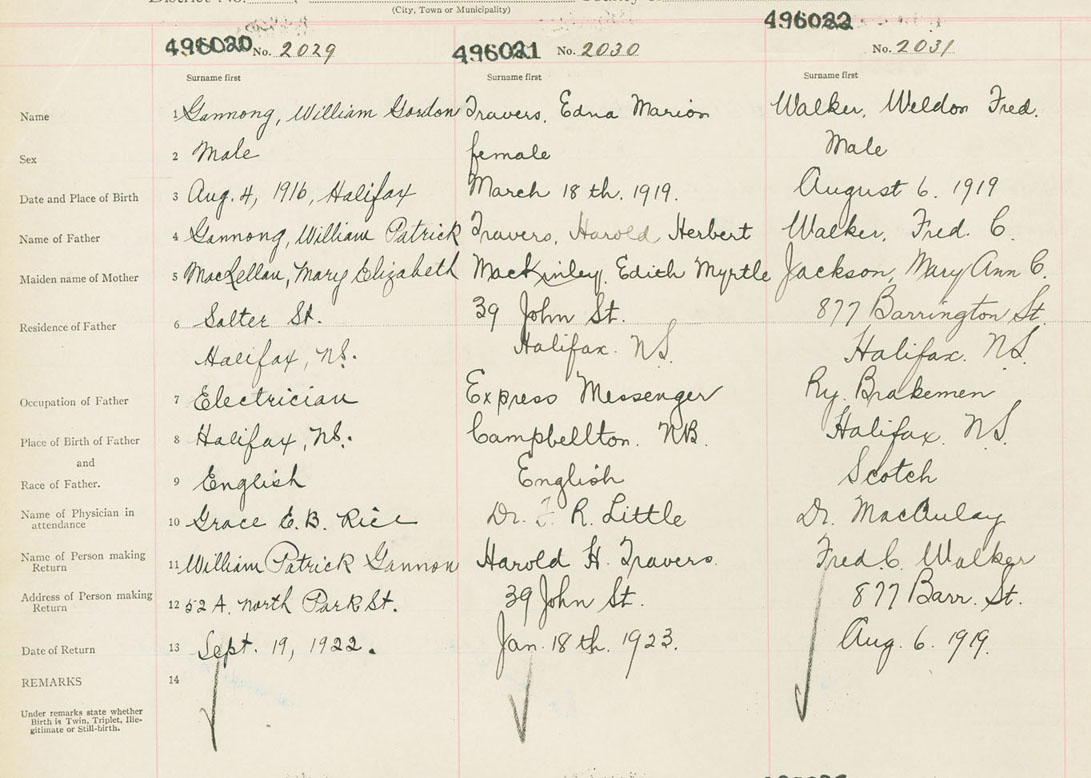 (City, Town or Municipality)
496020 No. 2029
496021 No. 2030
496022 No. 2031
Surname first
Surname first
Surname first
Name
1 Gannong, William Gordon
Travers, Edna Marion
Walker, Weldon Fred.
Sex
2 Male
female
Male
Date and Place of Birth
3 Aug. 4, 1916, Halifax
March 18th. 1919.
August 6. 1919
Name of Father
4 Gannong, William Patrick
Travers, Harold Herbert
Walker, Fred. C.
Maiden name of Mother
5 MacLellan, Mary Elizabeth
MacKinley, Edith Myrtle
Jackson, Mary Ann C.
Residence of Father
6 Salter St.
Halifax, N.S.
39 John St.
Halifax. N.S.
877 Barrington St.
Halifax. N.S.
Occupation of Father
7 Electrician
Express Messenger
Ry. Brakemen
Place of Birth of Father
8 Halifax, N.S.
Campbellton. N.B.
Halifax. N.S.
and
Race of Father.
9 English
English
Scotch
Name of Physician in
attendance
10 Grace E.B. Rice
Dr. R. Little
Dr. MacAulay
Name of Person making
Return
11 William Patrick Gannon
Harold H. Travers.
Fred. C. Walker
Address of Person making
Return
12 52 A. North Park St.
39 John St.
877 Barr. St.
Date of Return
13 Sept. 19, 1922.
Jan. 18th. 1923.
Aug. 6. 1919.
REMARKS
14
Under remarks state whether
Birth is Twin, Triplet, Ille-
gitimate or Still-birth.